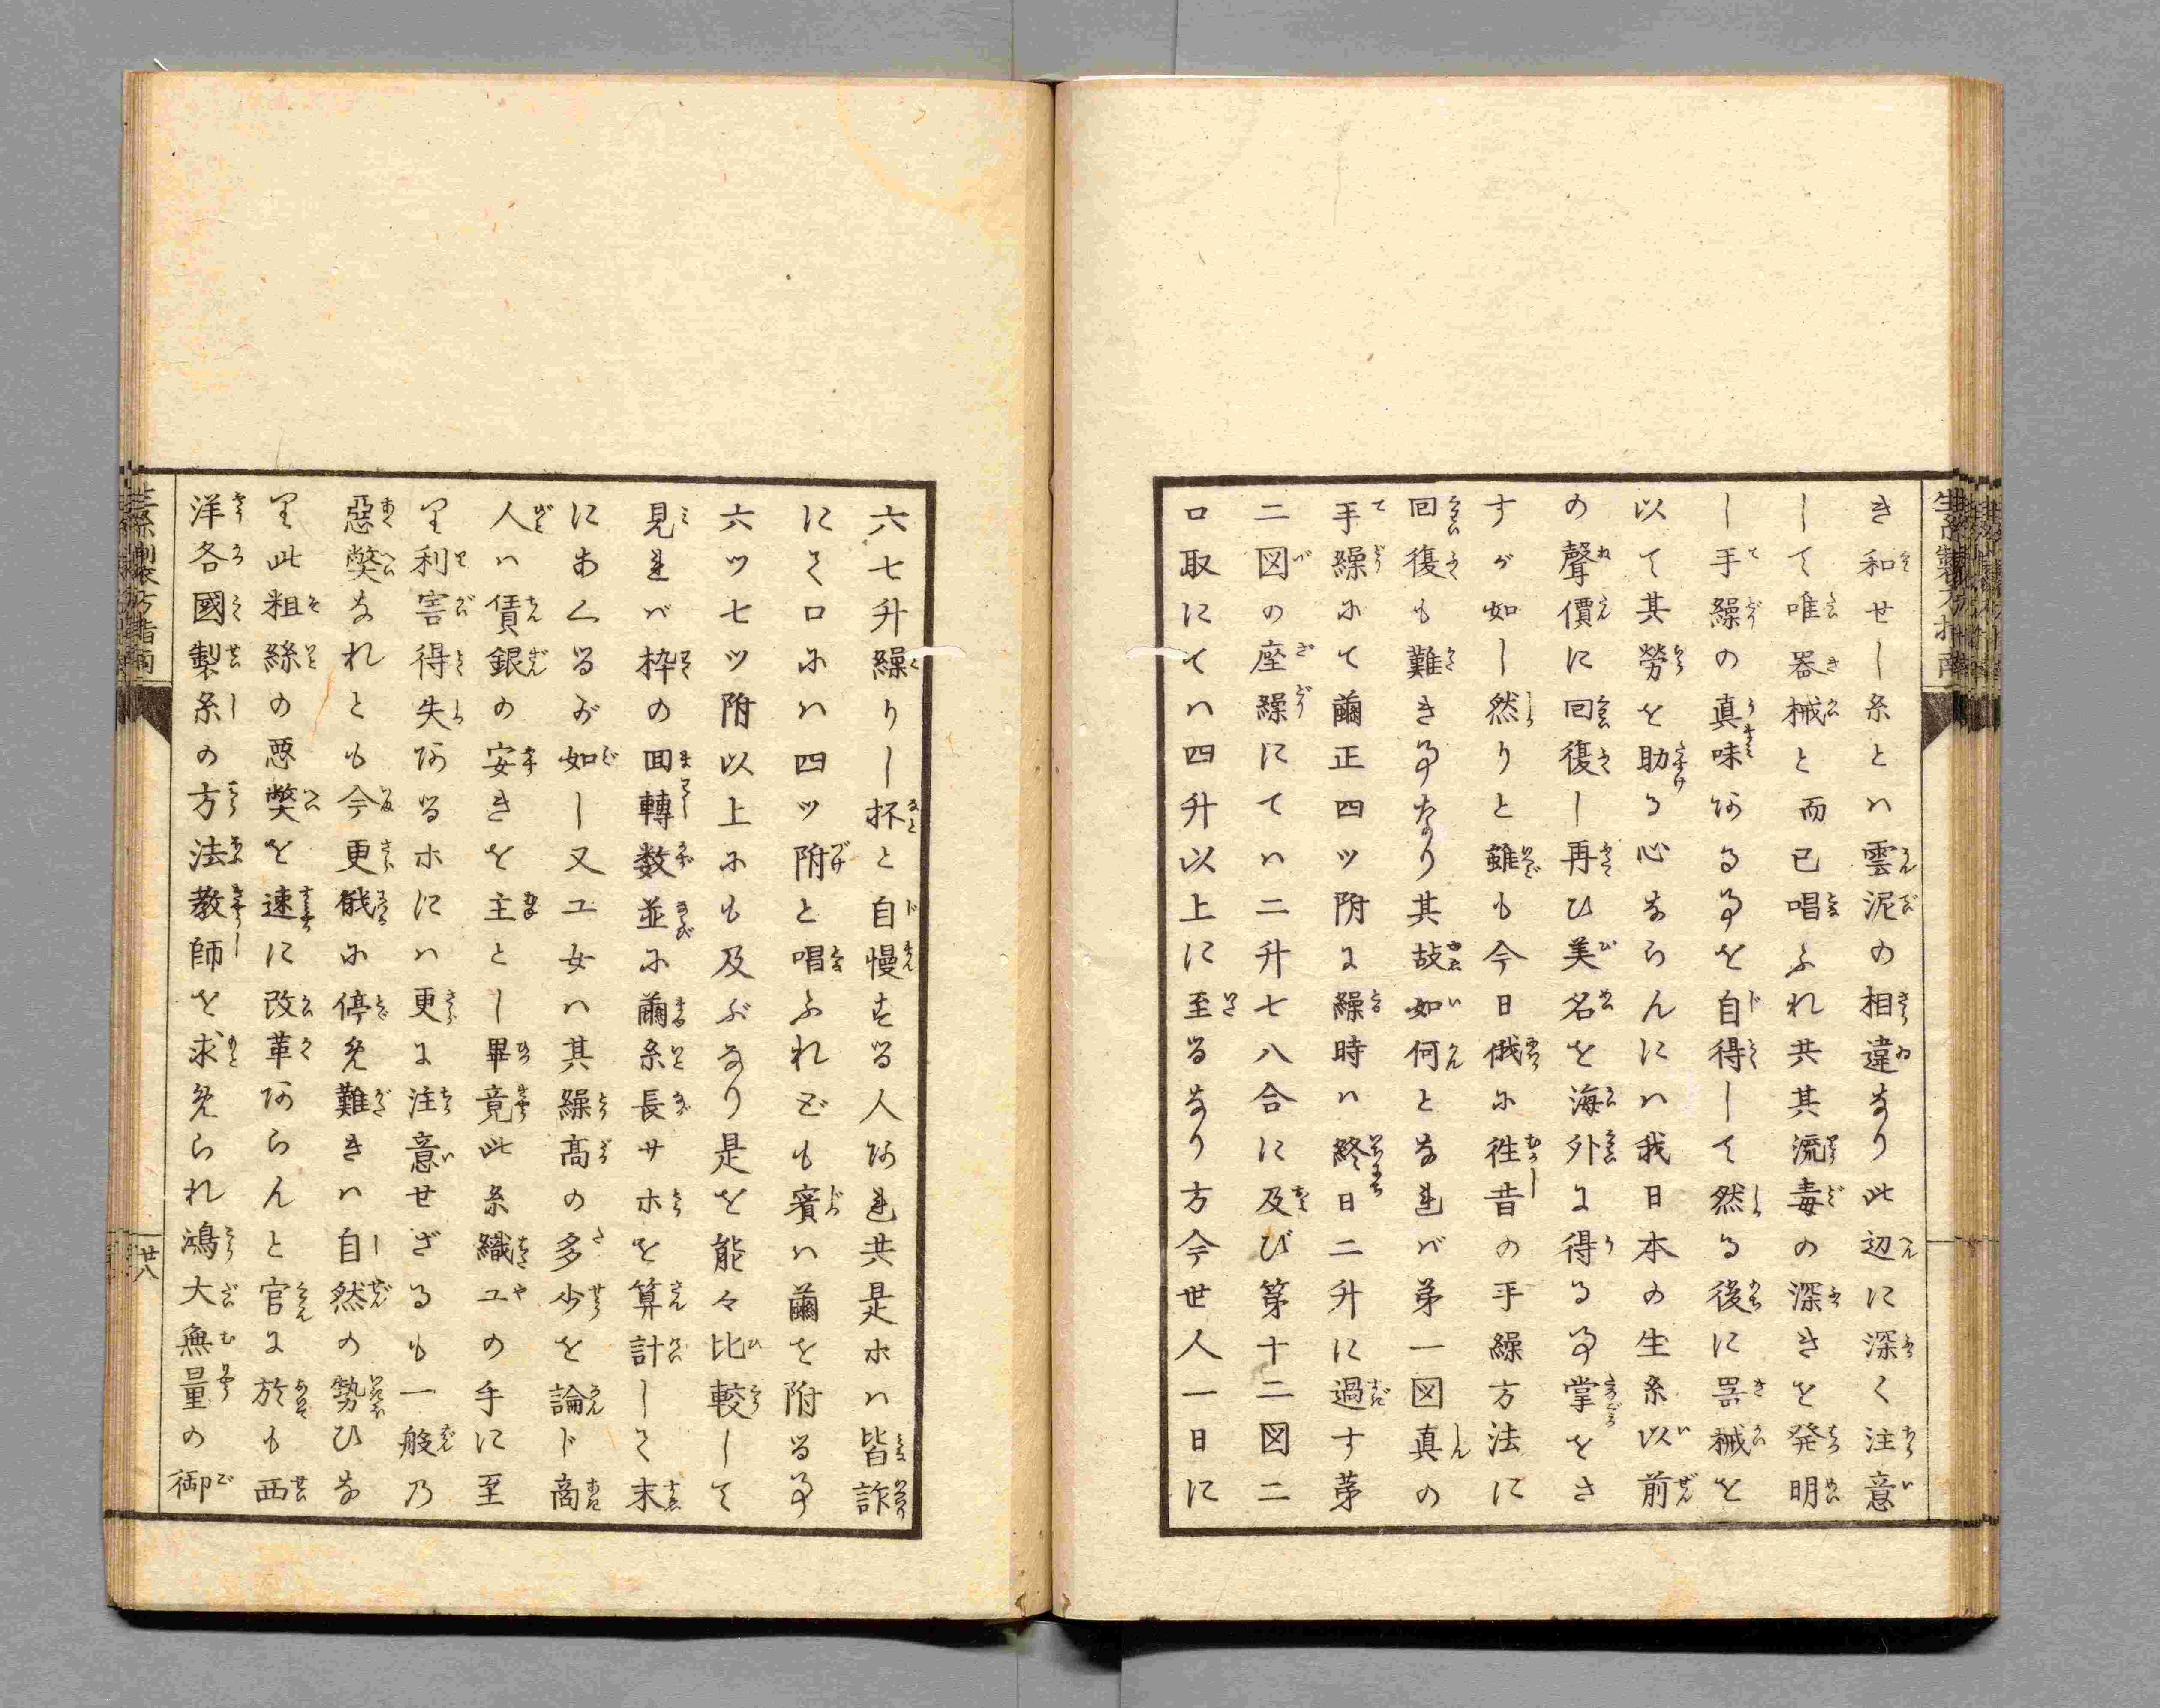 き和せし糸とハ雲泥の相違なり此辺に深く注意
して唯器械と而已唱ふれ共其流毒の深きを発明
し手繰の真味ある事を自得して然る後に器械を
以て其勞を助る心ならんにハ我日本の生糸以前
の聲價に回復し再ひ美名を海外に得る事掌をさ
すが如し然りと雖も今日俄に徃昔の手繰方法に
回復も難き事なり其故如何となれバ第一図真の
手繰にて繭正四ツ附に繰時ハ終日二升に過す第
二図の座繰にてハ二升七八合に及び第十二図二
口取にてハ四升以上に至るなり方今世人一日に
六七升繰りし抔と自慢する人あれ共是ホハ皆詐
にて口にハ四ツ附と唱ふれども實ハ繭を附る事
六ツ七ツ附以上にも及ぶなり是を能々比較して
見れバ枠の回轉数並に繭糸長サホを算計して末
にあくるが如し又工女ハ其繰高の多少を論じ商
人ハ賃銀の安きを主とし畢竟此糸織工の手に至
り利害得失あるホにハ更に注意せざるも一般乃
惡弊なれとも今更俄に停免難きハ自然の勢ひな
り此粗絲の悪弊を速に改革あらんと官に於も西
洋各國製糸の方法教師を求免られ鴻大無量の御
生糸製方指南
廿八